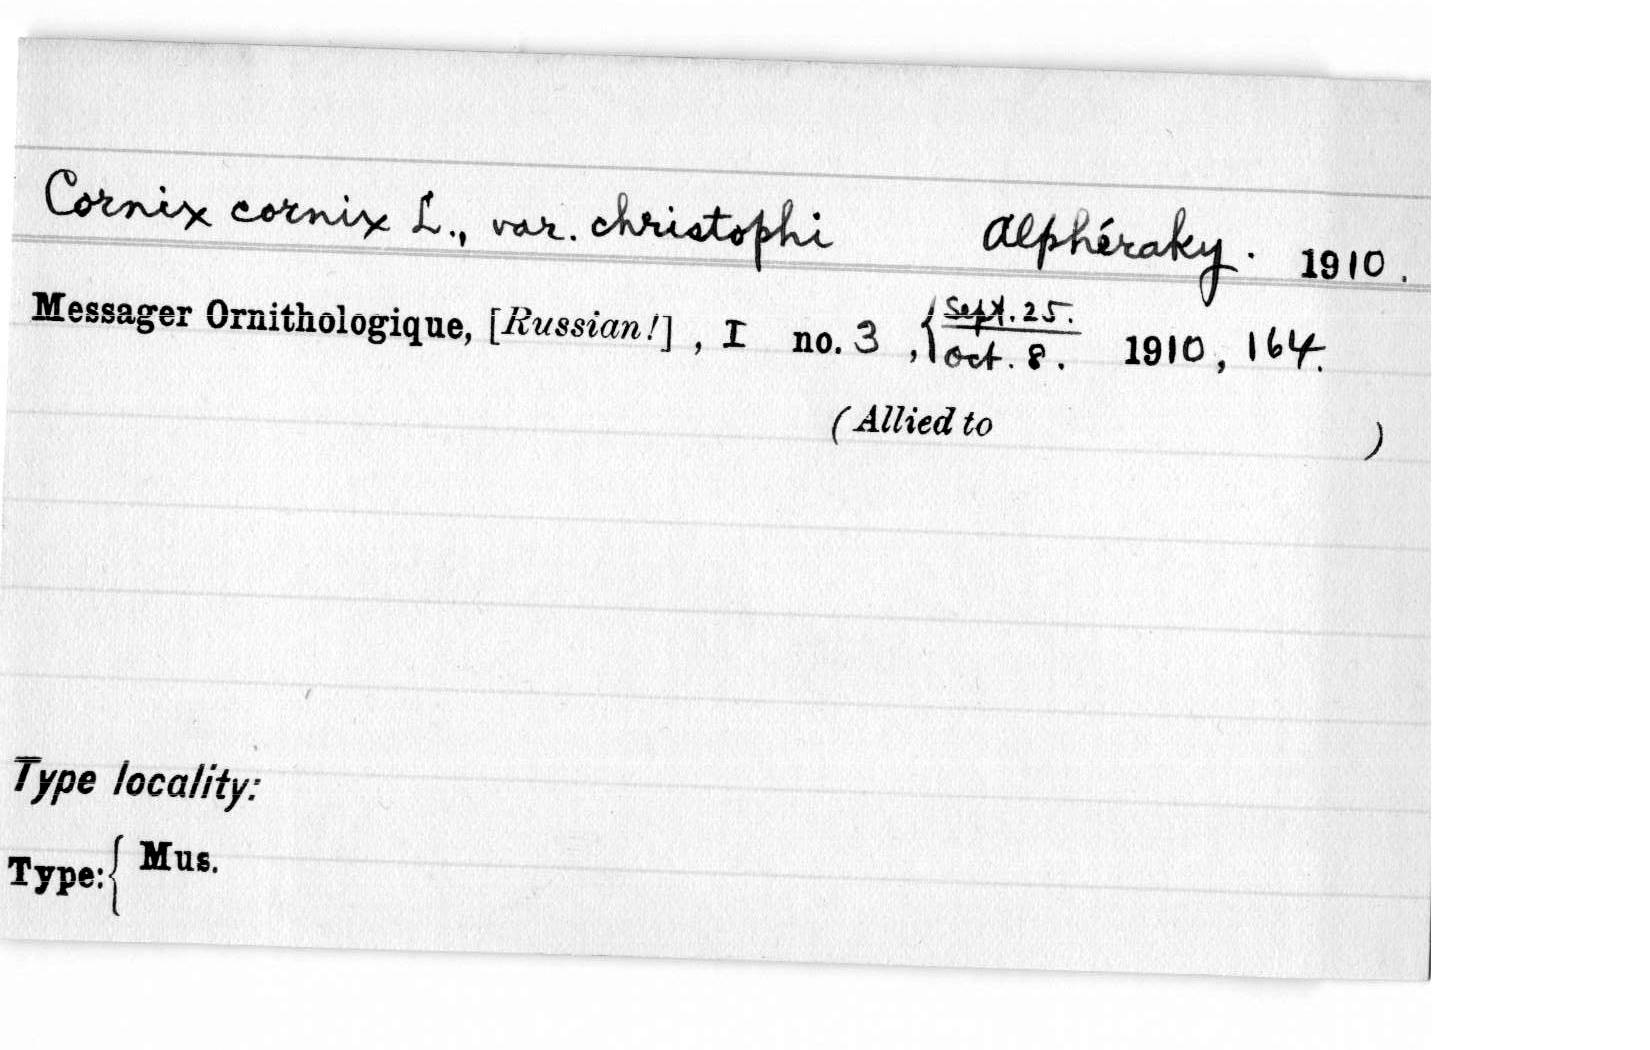 Cornix cornix L., var. christophi Alphéraky. 1910.
Messager Ornithologique, [Russian!], I no. 3, { Sept. 25. / Oct. 8. 1910, 164.
(Allied to )
Type locality:
Type: { Mus.